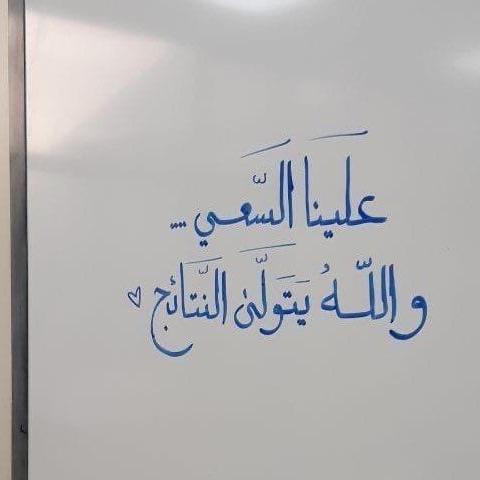 علينا السَّعي ....
واللّهُ يَتَولَّىٰ النَّتائج ♡